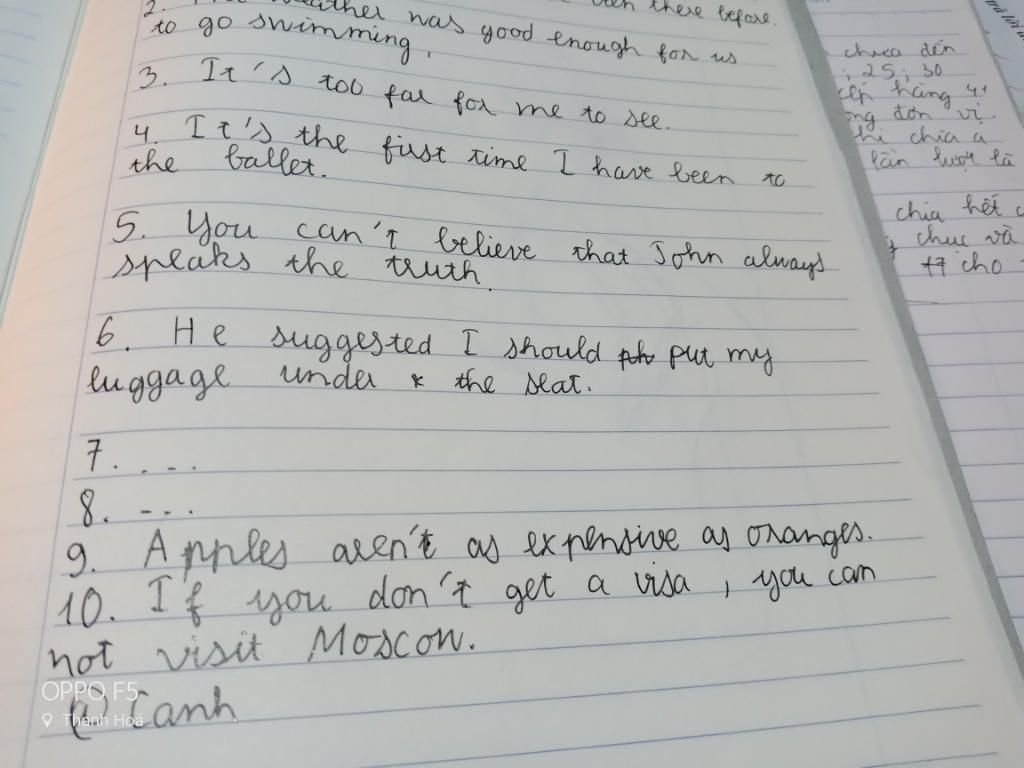 there before.
2. weather was good enough for us
to go swimming.
3. It's too far for me to see.
4. It's the first time I have been to
the ballet.
5. You can't believe that John always
speaks the truth.
6. He suggested I should put my
luggage under the seat.
7. . . .
8. - - .
9. Apples aren't as expensive as oranges.
10. If you don't get a visa, you can
not visit Moscow.
Canh
OPPO F5
Thanh Hoá
chưa đến
, 25, 30
hàng
đơn vị
thì chia
lần lượt là
chia hết
chục và
cho